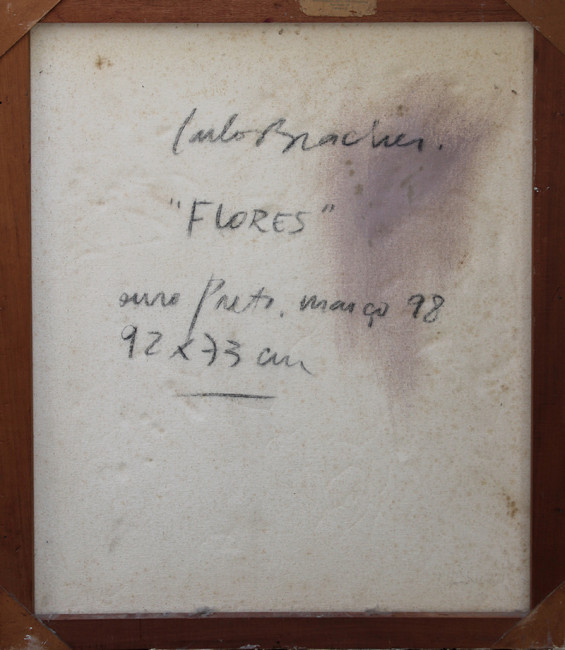 Carlos Bracher.
"FLORES"
ouro Preto, março 98
92 x 73 cm